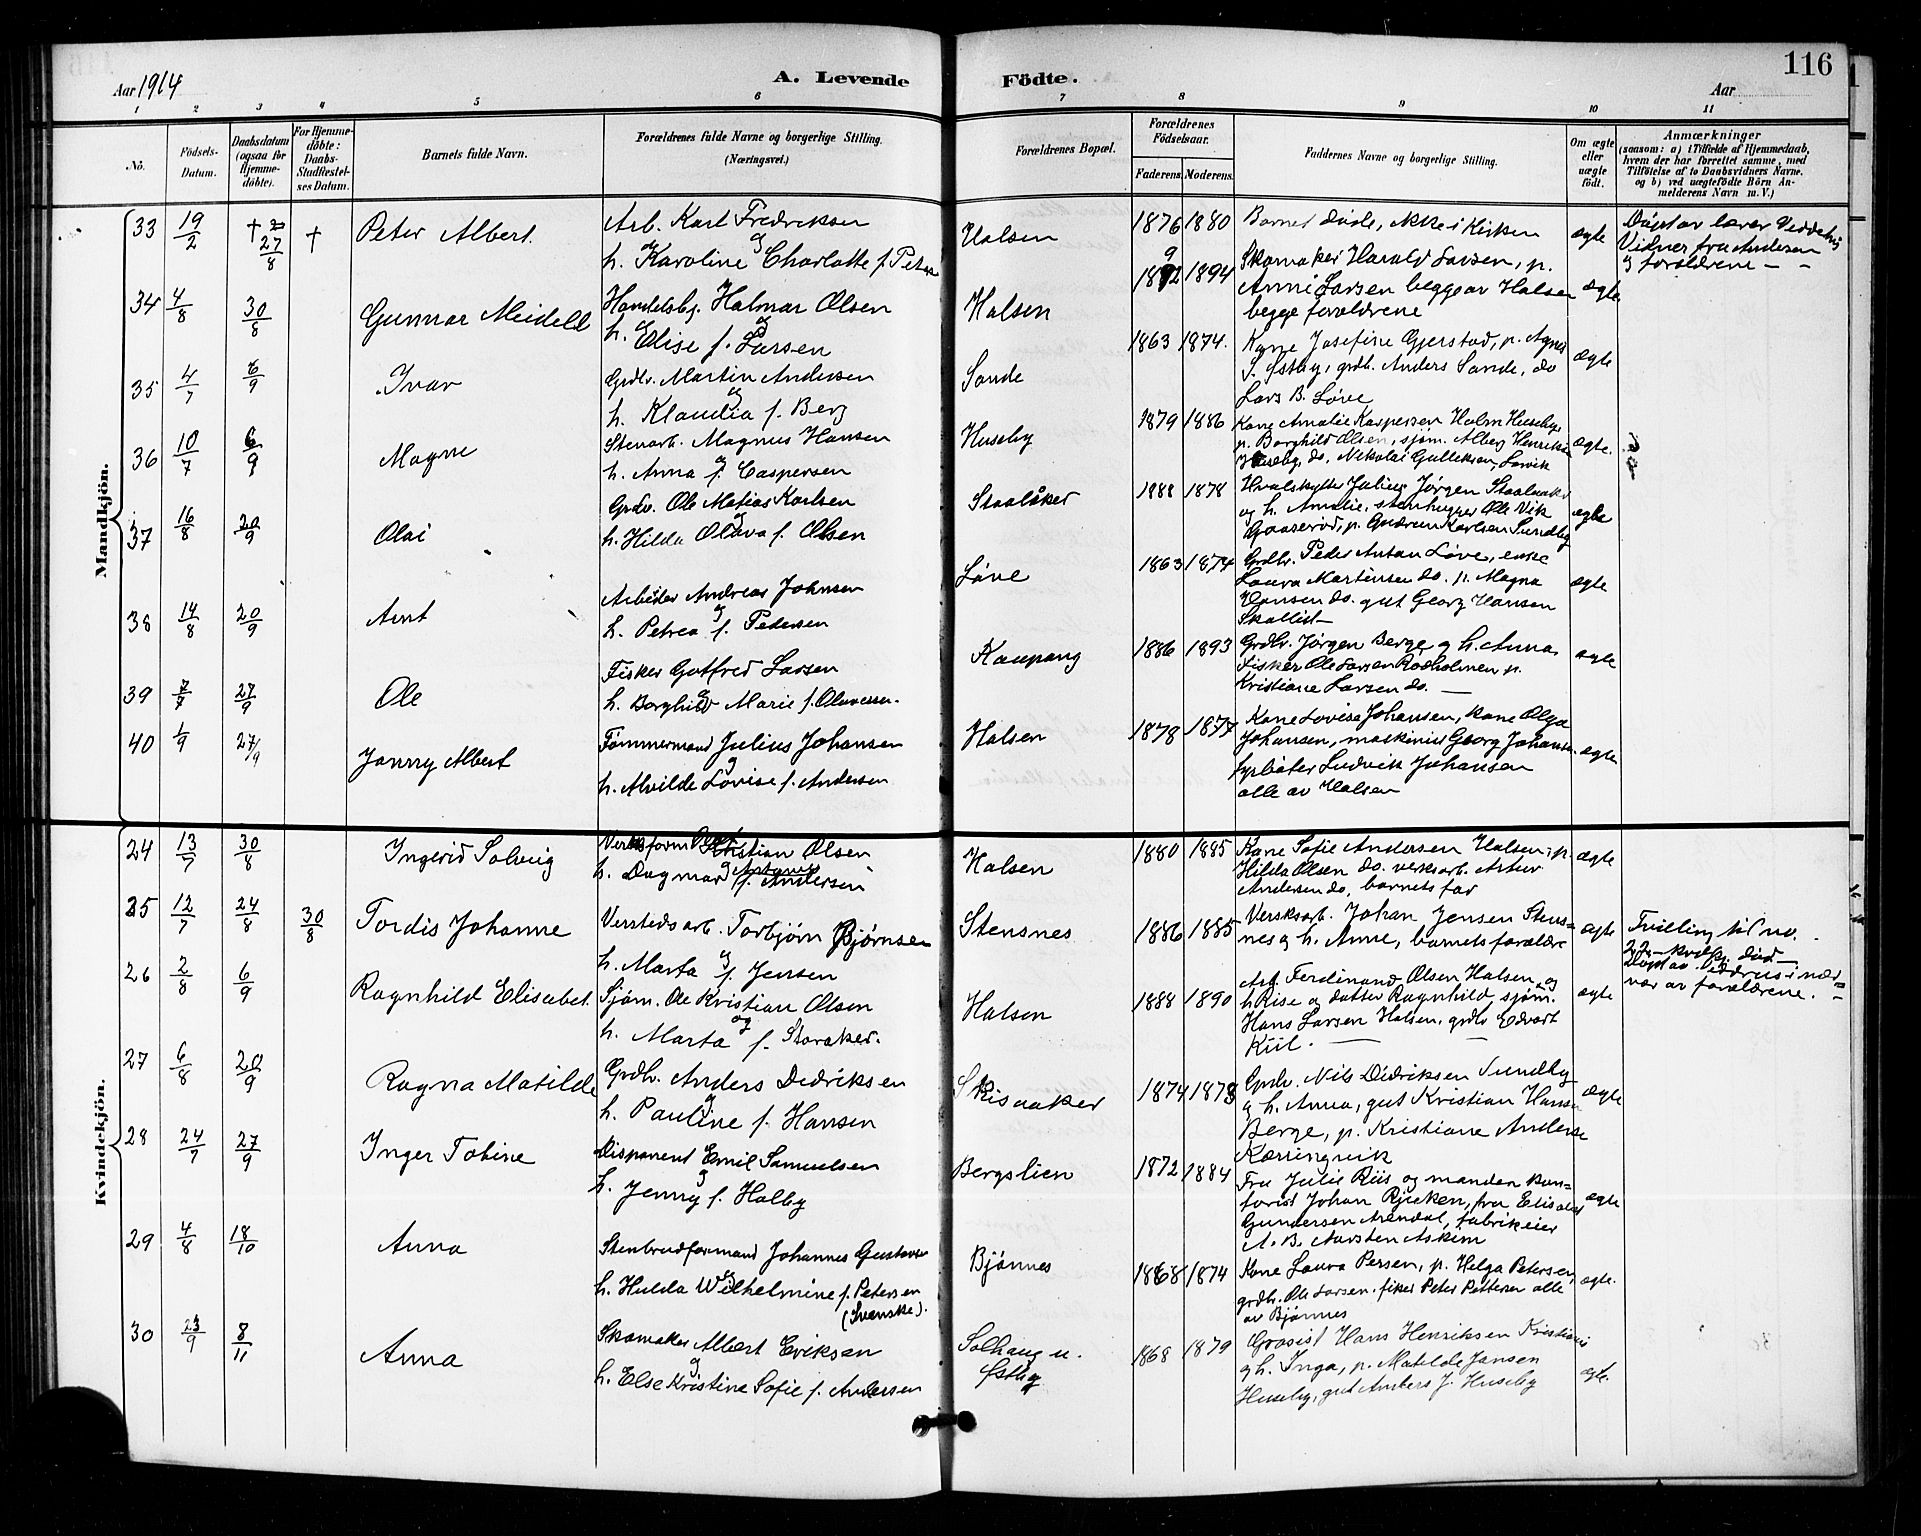 116
Aar 1914
A. Levende Födte.
Aar
1 2 3 4 5 6 7 8 9 10 11
No.
Födsels-Datum.
Daabsdatum (ogsaa for Hjemme-döbte).
For Hjemme-döbte: Daabs-Stadfestel-ses Datum.
Barnets fulde Navn.
Forældrenes fulde Navne og borgerlige Stilling. (Næringsvei.)
Forældrenes Bopæl.
Forældrenes Födselsaar.
Faderens. Moderens.
Faddernes Navne og borgerlige Stilling.
Om ægte eller uægte födt.
Anmærkninger
(saasom: a) i Tilfælde af Hjemmedaab,
hvem der har forrettet samme, med
Tilföielse af to Daabsvidners Navne.
og b) ved uægtefödte Börn An-
melderens Navn m. V.)
Mandkjön.
33 19/2 † 27/8 † Peter Albert.
Arb. Karl Fredriksen
og
h. Karoline Charlotte f. Peters
Halsen 1876 1880
Barnet døde, ikke i Kirken
ægte
Døpt av lærer
Vidner fru Andersen
og forældrene
34 4/8 30/8 Gunnar Meidell
Handelsbg. Halmar Olsen
og
h. Elise f. Larsen
Halsen 1892 1894
Skomaker Harald Larsen, p.
Anni Larsen begge av Halsen
begge forældrene
ægte
35 4/7 6/9 Ivar
Grdbr. Martin Andersen
og
h. Klaudia f. Berg
Sande 1863 1874.
Kone Josefine Gjerstad, p. Agnes
S. Østby, grdb. Anders Sande, do
Lars B. Løve
ægte
36 10/7 6/9 Magne
Stenarb. Magnus Hansen
og
h. Anna f. Caspersen
Huseby 1879 1886
Kone Amalie Kaspersen Holm Huseby,
p. Borghild Olsen, sjøm. Alberg Henriks
Huseby, do. Nikolai Gulleksen, Larvik
ægte.
37 16/8 20/9 Olai
Grdbr. Ole Matias Karlsen
og
h. Hilda Olava f. Olsen
Staalåker 1888 1878
Hvalskytter Julius Jørgen Staalaaker
og h. Amalie, stenhugger Ole Vik
Gaaserød, p. Gudrun Karlsen Sundby
ægte
38 14/8 20/9 Arnt
Arbeider Andreas Johnsen
og
h. Petrea f. Pedersen
Løve 1863 1874
Grdbr. Peder Anton Løve, enke
Laura Martinsen do. p. Magna
Hansen do. gut Georg Hansen
Skallist
ægte
39 7/7 27/9 Ole
Fisker Gotfred Larsen
og
h. Borghild Marie f. Oluvessen.
Kaupang 1886 1893
Grdbr. Jørgen Berge og h. Anna
Fisker Ole Larsen Rødholmen p.
Kristiane Larsen do.
ægte
40 1/9 27/9 Jonny Albert
Tømmermand Julius Johansen
og
h. Alvilde Lovise f. Andersen
Halsen 1878 1877
Kone Lovise Johansen, kone Olga
Johansen, maskinist Georg Johansen
fyrbøter Ludvik Johansen
alle av Halsen
ægte
Kvindekjön.
24 13/7 30/8 Ingerid Solveig
Verksform Kristian Olsen
og
h. Dagmar f. Andersen
Halsen 1880 1885
Kone Sofie Andersen Halsen, p.
Hilda Olsen do. verksarb. Artur
Andersen do, barnets far
ægte
25 12/7 24/8 30/8 Tordis Johanne
Verstedsarb. Torbjørn Bjørnsen
og
h. Marta f. Jensen
Stensnes 1886 1885
Versksarb. Johan Jensen Stens-
nes og h. Anne, barnets forældre
ægte
Tvilling til no.
22 - kvik. død
Døpt av i nær-
vær av forældrene.
26 2/8 6/9 Ragnhild Elisabet
Sjøm. Ole Kristian Olsen
og
h. Marta f. Storaker.
Halsen 1888 1890
Arb. Ferdinand Olsen Halsen, og
h. Rise og datter Ragnhild, sjøm.
Hans Larsen Halsen, grdb Edvart
Kiil.
ægte
27 6/8 20/9 Ragna Matilde
Grdbr. Anders Didriksen
og
h. Pauline f. Hansen
Skisaaker 1874 1878
Grdbr. Nils Didriksen Sundby
og h. Anna, gut Kristian Hansen
Berge, p. Kristiane Anderse
Kærringvik
ægte
28 24/7 27/9 Inger Tobine
Disponent Emil Samuelsen
og
h. Jenny f. Holby
Bergslien 1872 1884
Fru Julie Riis og manden kon-
torist Johan, fru Elisabet
Gundersen Arendal, fabrikeier
A. B. Aarsten Askim
ægte
29 4/8 18/10 Anna
Stenbrudformand Johannes Gustavs
og
h. Hulda Wilhelmine f. Petersen
(Svenske).
Bjønnes 1868 1874
Kone Laura Persen, p. Helga Petersen,
grdb. Ole Larsen, fisker Peter Pettersen alle
av Bjønnes
ægte.
30 23/9 8/11 Anna
Skomaker Albert Eriksen
og
h. Else Kristine Sofie f. Andersen
Solhaug u.
Østby
1868 1879
Grosist Hans Henriksen Kristiania
og h. Inga, p. Matilde Jansen
Huseby, gut Anders J. Huseby
ægte.